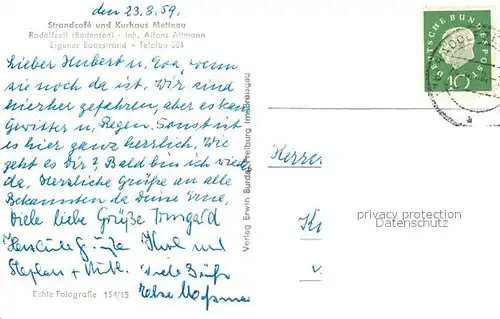 den 23.8.59.
Strandcafé und Kurhaus Mettnau
Radolfzell (Bodensee) · Inh. Alfons Altmann
Eigener Badestrand · Telefon 384
Lieber Hubert u. Eva, wenn
sie noch da ist. Wir sind
hierher gefahren, aber es kam
Gewitter u. Regen. Sonst ist
es hier ganz herrlich. Wie
geht es Dir? Bald bin ich wieder
da. Herzliche Grüße an alle
Bekannten da Deine
Viele liebe Grüße Irmgard
Herzliche Grüße und
Stephan + viele Grüße
Echte Fotografie 154/15
Verlag Erwin Burda, Freiburg im Breisgau
DEUTSCHE BUNDESPOST
10
Herrn
privacy protection
Datenschutz